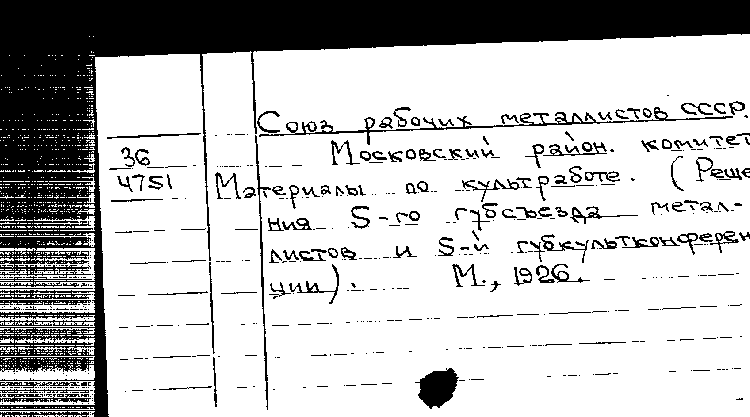 Союз рабочих металлистов СССР.
36 Московский район. комитет
4751 Материалы по культработе. (Реше
ния 5-го губсъезда метал-
листов и 5-й губкультконферен
ции). М., 1926.